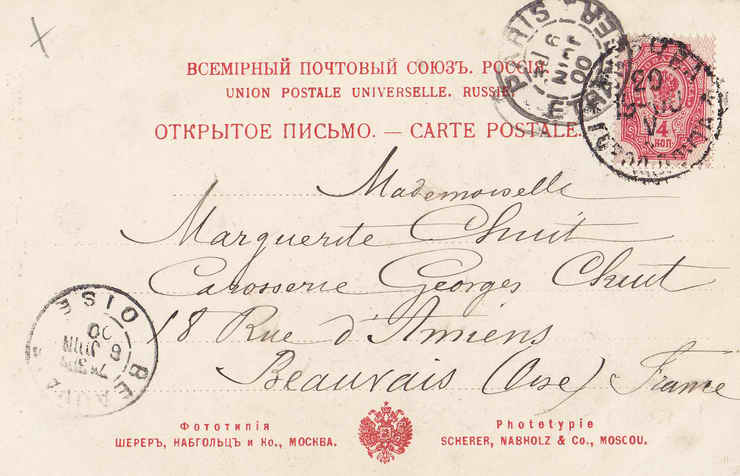 ВСЕМІРНЫЙ ПОЧТОВЫЙ СОЮЗЪ. РОССІЯ
UNION POSTALE UNIVERSELLE. RUSSIE
ОТКРЫТОЕ ПИСЬМО. — CARTE POSTALE
PARIS ETRANGER
6 JUIN 00
4 КОП
Mademoiselle
Marguerite Chuit
Carosserie Georges Chuit
18 Rue d'Amiens
Beauvais (Oise) France
BEAUVAIS OISE
6 JUIN 00
Фототипія
ШЕРЕРЪ, НАБГОЛЬЦЪ и Ко., МОСКВА.
Phototypie
SCHERER, NABHOLZ & Co., MOSCOU.